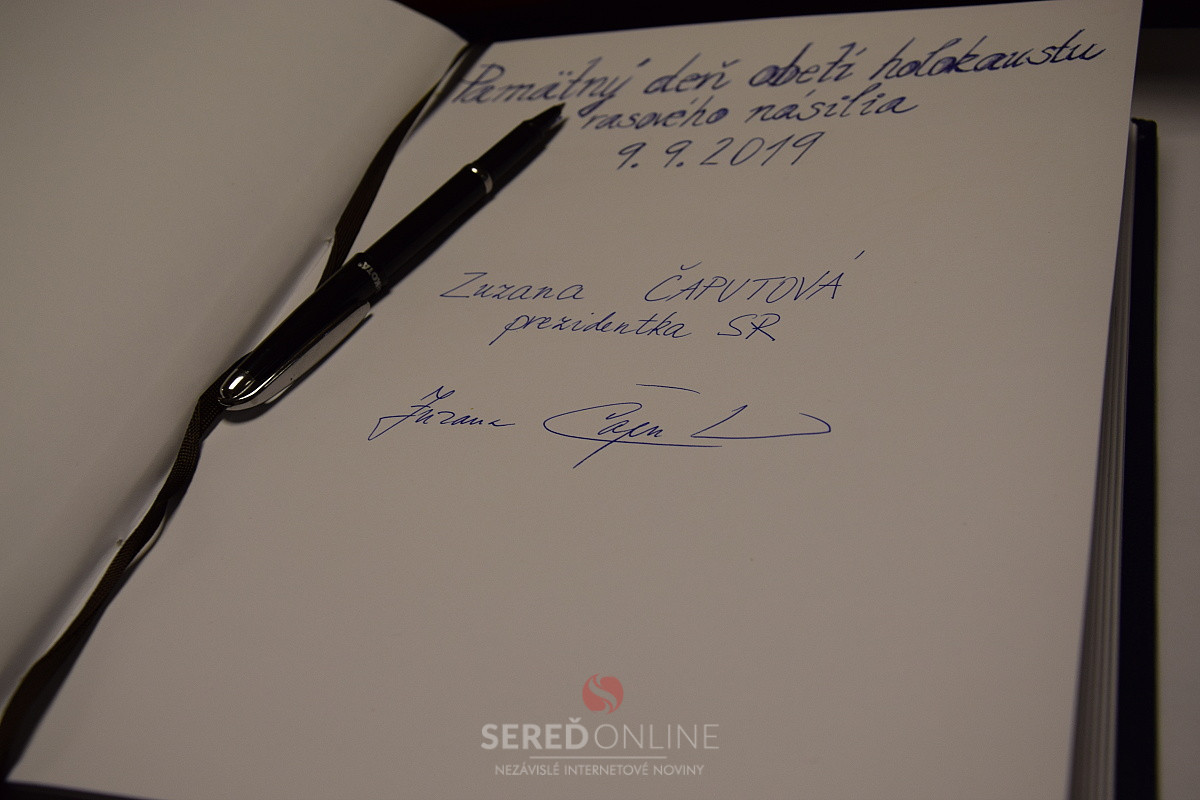 Pamätný deň obetí holokaustu
rasového násilia
9. 9. 2019
Zuzana ČAPUTOVÁ
prezidentka SR
Zuzana Čapu
SEREĎ ONLINE
NEZÁVISLÉ INTERNETOVÉ NOVINY